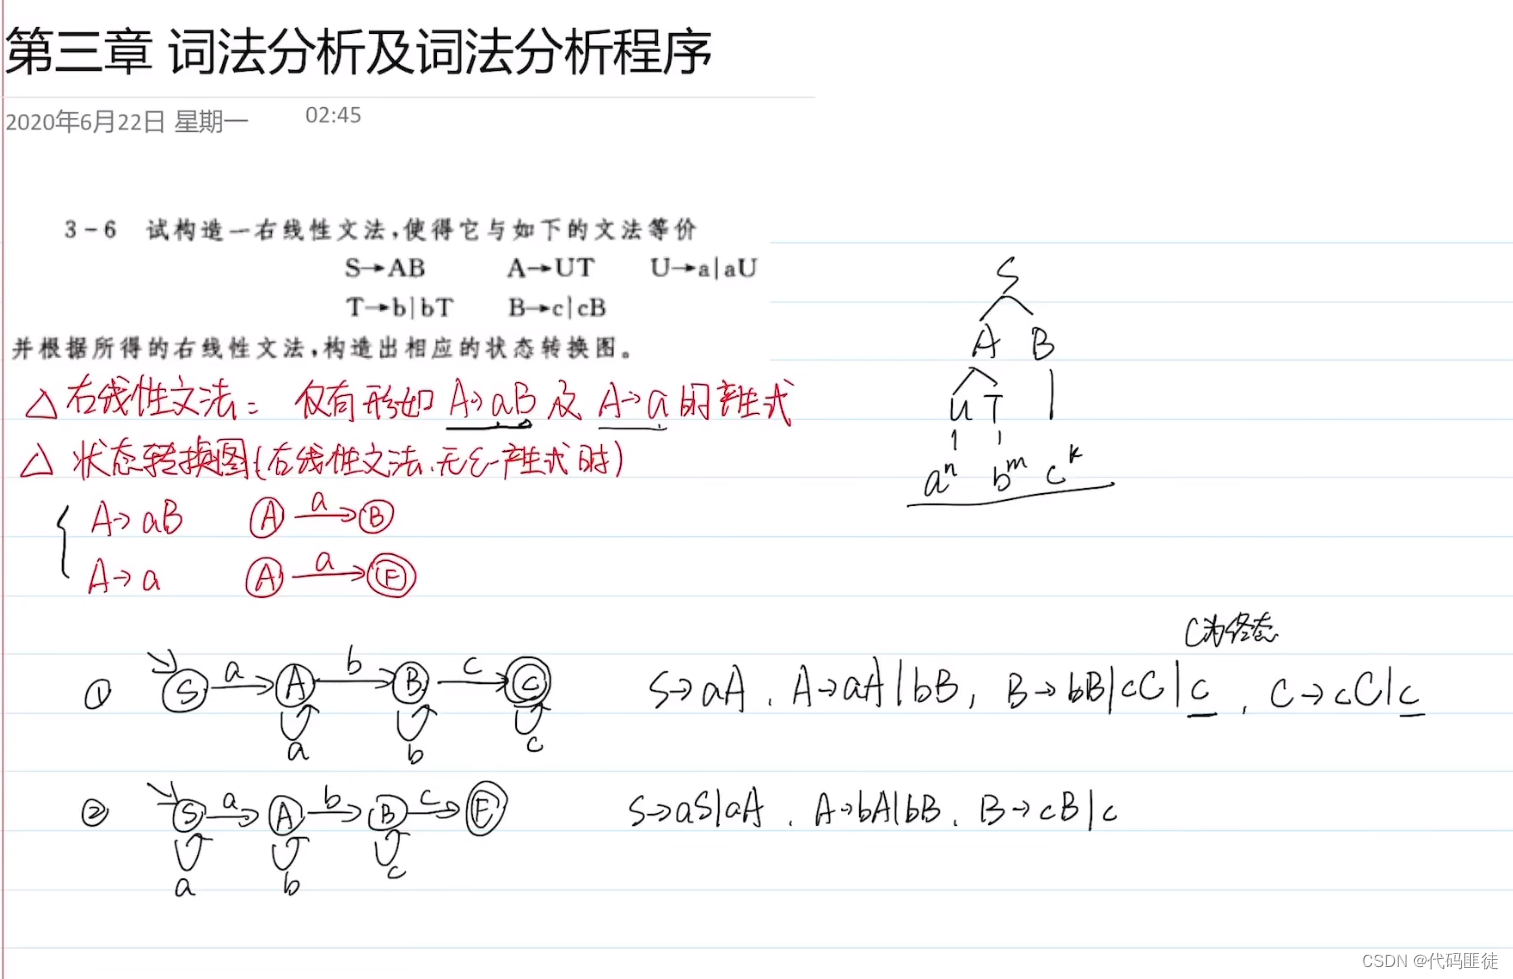 第三章 词法分析及词法分析程序
2020年6月22日 星期一 02:45
3-6 试构造一右线性文法,使得它与如下的文法等价
S→AB A→UT U→a|aU
T→b|bT B→c|cB
并根据所得的右线性文法,构造出相应的状态转换图。
S
A B
U T
aⁿ bᵐ cᵏ
△ 右线性文法: 仅有形如 A→aB 及 A→a 的产生式
△ 状态转换图(右线性文法,无ε-产生式时)
A→aB A a B
A→a A a F
C为终态
① S a A b B c C S→aA, A→aA|bB, B→bB|cC|c, C→cC|c
a b c
② S a A b B c F S→aS|aA, A→bA|bB, B→cB|c
a b c
CSDN @代码匪徒